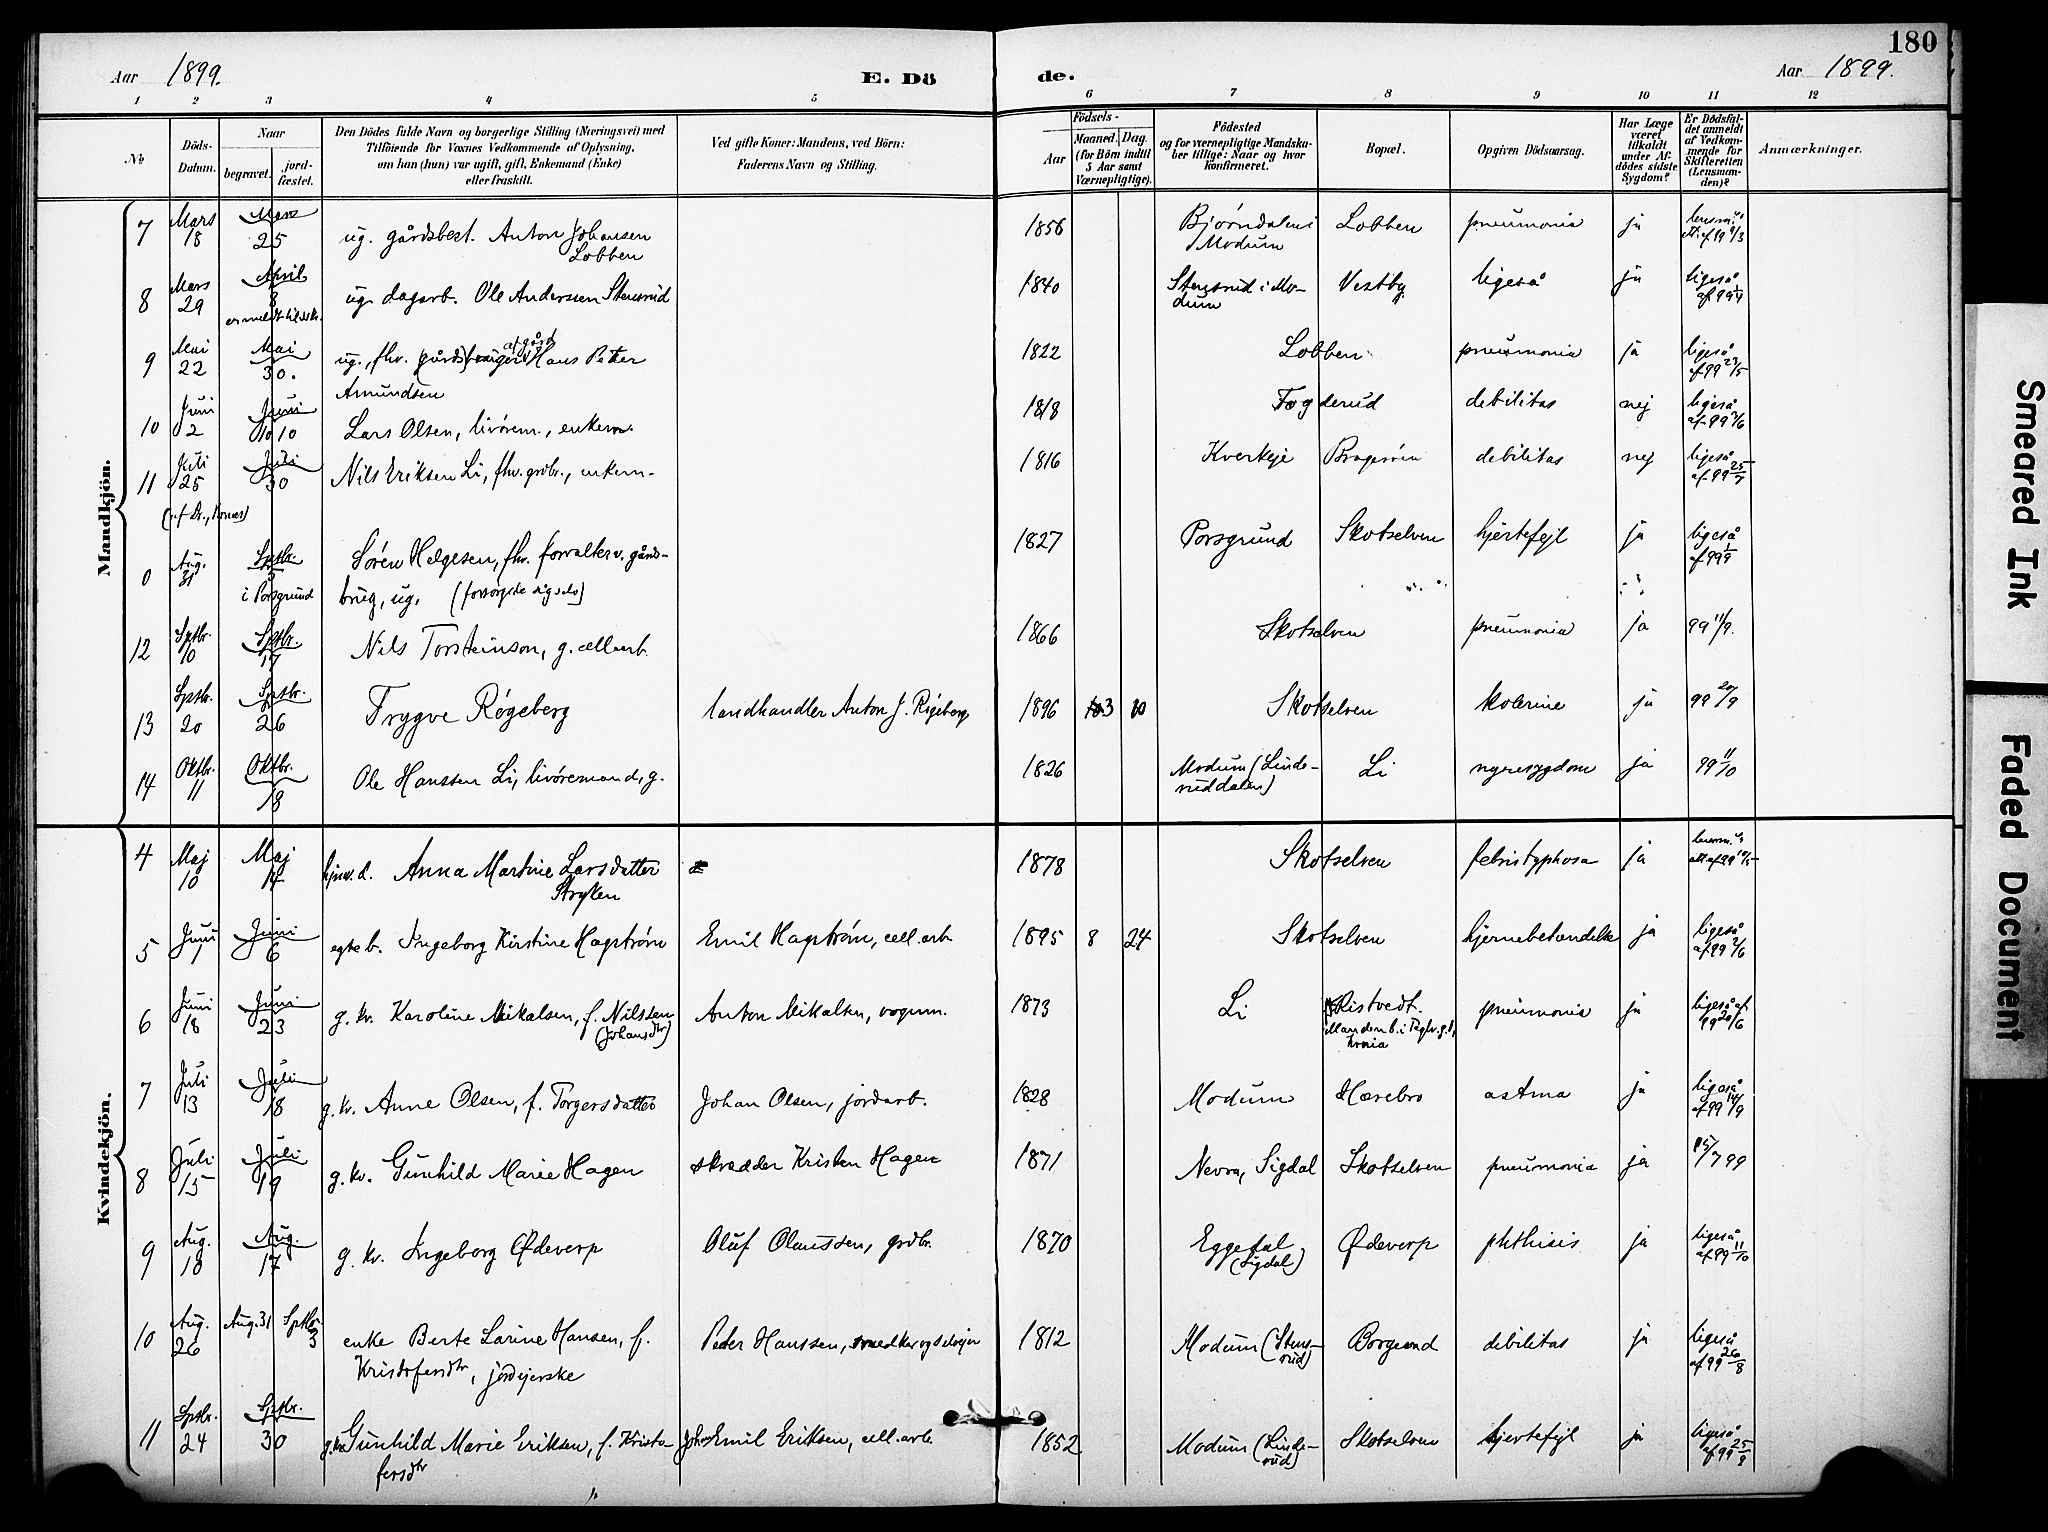 180
Aar 1899. E. Dö de. Aar 1899.
1 2 3 4 5 6 7 8 9 10 11 12
No
Döds-Datum.
Naar
begravet. jord-fæstet.
Den Dödes fulde Navn og borgerlige Stilling (Næringsvei) med
Tilföiende for Voxnes Vedkommende af Oplysning,
om han (hun) var ugift, gift, Enkemand (Enke)
eller fraskilt.
Ved gifte Koner: Mandens, ved Börn:
Faderens Navn og Stilling.
Födsels-
Aar
Maaned. Dag.
(for Börn indtil
5 Aar samt
Værnepligtige).
Födested
og for værnepligtige Mandska-
ber tillige: Naar og hvor
konfirmeret.
Bopæl.
Opgiven Dödsaarsag.
Har Læge
været
tilkaldt
under Af-
dödes sidste
Sygdom?
Er Dödsfal-
det anmeldt
af Vedkom-
mende for
Skifteretten
(Lensman-
den)?
Anmærkninger.
Mandkjön.
7 Mars 18 Mars 25 ug. gårdsbest. Anton Johansen Lobben 1856 Bjørndalen i Modum Lobben pneumonia ja
8 Mars 29 April 8 ug. dagarb. Ole Anderssen Stensrud 1840 Stensrud i Modum Vestby ligeså ja ligeså
9 Mai 22 Mai 30. ug., fhv. gårdbruger af gård Hans Peter Amundsen 1822 Lobben pneumonia ja ligeså af 99 23/5
10 Juni 2 Juni 10 Lars Olsen, livörem., enkem. 1818 Fogderud debilitas nej ligeså af 99 2/6
11 Juli 25 Juli 30 Nils Eriksen Li, fhv. grdbr., enkem. 1816 Kverkje debilitas nej ligeså af 99 25/7
0 Aug. 31 Septbr. 5 i Porsgrund Sören Helgesen, fhv. forvalter v. gårds-
brug, ug. (forsörgede sig selv) 1827 Porsgrund Skotselven hjertefejl ja ligeså af 99 1/9
12 Septbr. 10 Septbr. 17 Nils Torsteinson, g. cell.arb. 1866 Skotselven pneumonia ja 99 11/9.
13 Septbr. 20 Septbr. 26 Trygve Røgeberg landhandler Anton J. Røgeberg 1896 3 10 Skotselven kolerine ja 99 20/9
14 Oktbr. 11 Oktbr. 18 Ole Hanssen Li, livöremand, g. 1826 Modum (Linde-
ruddalen) Li nyresygdom ja 99 11/10
Kvindekjön.
4 Maj 10 Maj 14 Anna Martine Larsdatter Stryken 1878 Skotselven febris typhosa ja
5 Juni 1 Juni 6 egte b. Ingeborg Kirstine Hagström Emil Hagström, cell. arb. 1895 8 24 Skotselven hjernebetændelse ja ligeså af 99 2/6
6 Juni 18 Juni 23 g. kv. Karoline Mikalsen, f. Nilssen (Johansdtr) Anton Mikalsen, vognm. 1873 Li pneumonia ja ligeså af 99 20/6
7 Juli 13 Juli 18 g. kv. Anne Olsen, f. Torgersdatter Johan Olsen, jordarb. 1828 Modum Hærebro astma ja ligeså
8 Juli 15 Juli 19 g. kv. Gunhild Marie Hagen skrædder Kristen Hagen 1871 Nevra, Sigdal Skotselven pneumonia ja 15/7 99
9 Aug. 18 Aug. 17 g. kv. Ingeborg Ødeverp Oluf Olaussen, grdbr. 1870 Eggedal (Sigdal) Ødeverp phthisis ja ligeså af 99 11/10
10 Aug. 26 Aug. 31 Septbr. 3 enke Berte Larine Hansen, f.
Kristofersdtr, jordejerske Peter Hanssen, snedker og selvejer 1812 Modum (Stens-
rud) Borgesand debilitas ja ligeså af 99 26/8
11 Septbr. 24 Septbr. 30 g. kv. Gunhild Marie Eriksen, f. Kristo-
fersdtr Johan Emil Eriksen, cell. arb. 1852 Modum (Linde-
rud) Skotselven hjertefejl ja ligeså af 99 25/9
Smeared Ink
Faded Document